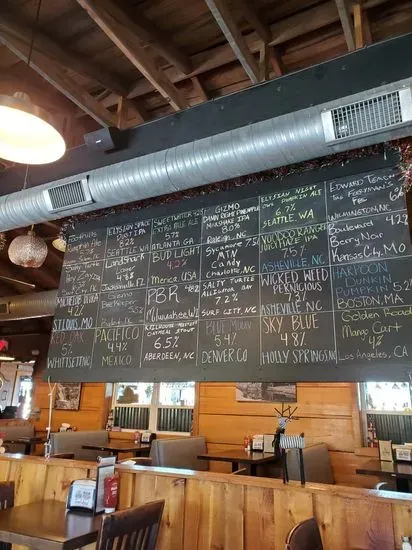 Elysian Space
8.2%
Seattle WA
LandShark
Lager
4.
Jacksonville Fl
Gizmo
Michelob Ultra
4.2
St. Louis, MO
Red Oak
5%
Whitsett NC
Pacifico
4.4%
Mexico
Sweetwater 420
Extra Pale Ale
5.7%
Atlanta GA
Bud Light
4.2%
Merica USA
PBR
Milwaukee WI
Oatmeal Stout
6.5%
Aberdeen, NC
Gizmo
Damn Right Pineapple
Milkshake IPA
8%
Raleigh, NC
Sycamore 7.5%
MTN
Candy
Charlotte, NC
Salty Turtle
Alabama Bay
7.2%
Surf City, NC
Blue Moon
5.4%
Denver CO
Elysian Night
Owl Pumpkin Ale
6.7%
Seattle, WA
Voodoo Ranger
Juicy Haze IPA
7.5%
Asheville, NC
Wicked Weed
Pernicious
7.3%
Asheville NC
Sky Blue
4.8%
Holly Springs, NC
Edward Teach
Wilmington, NC
Boulevard
Berry Noir
4.2%
Kansas City, MO
Harpoon
Dunkin
Pumpkin
5.2%
Boston, MA
Golden Road
Mango Cart
4%
Los Angeles, CA